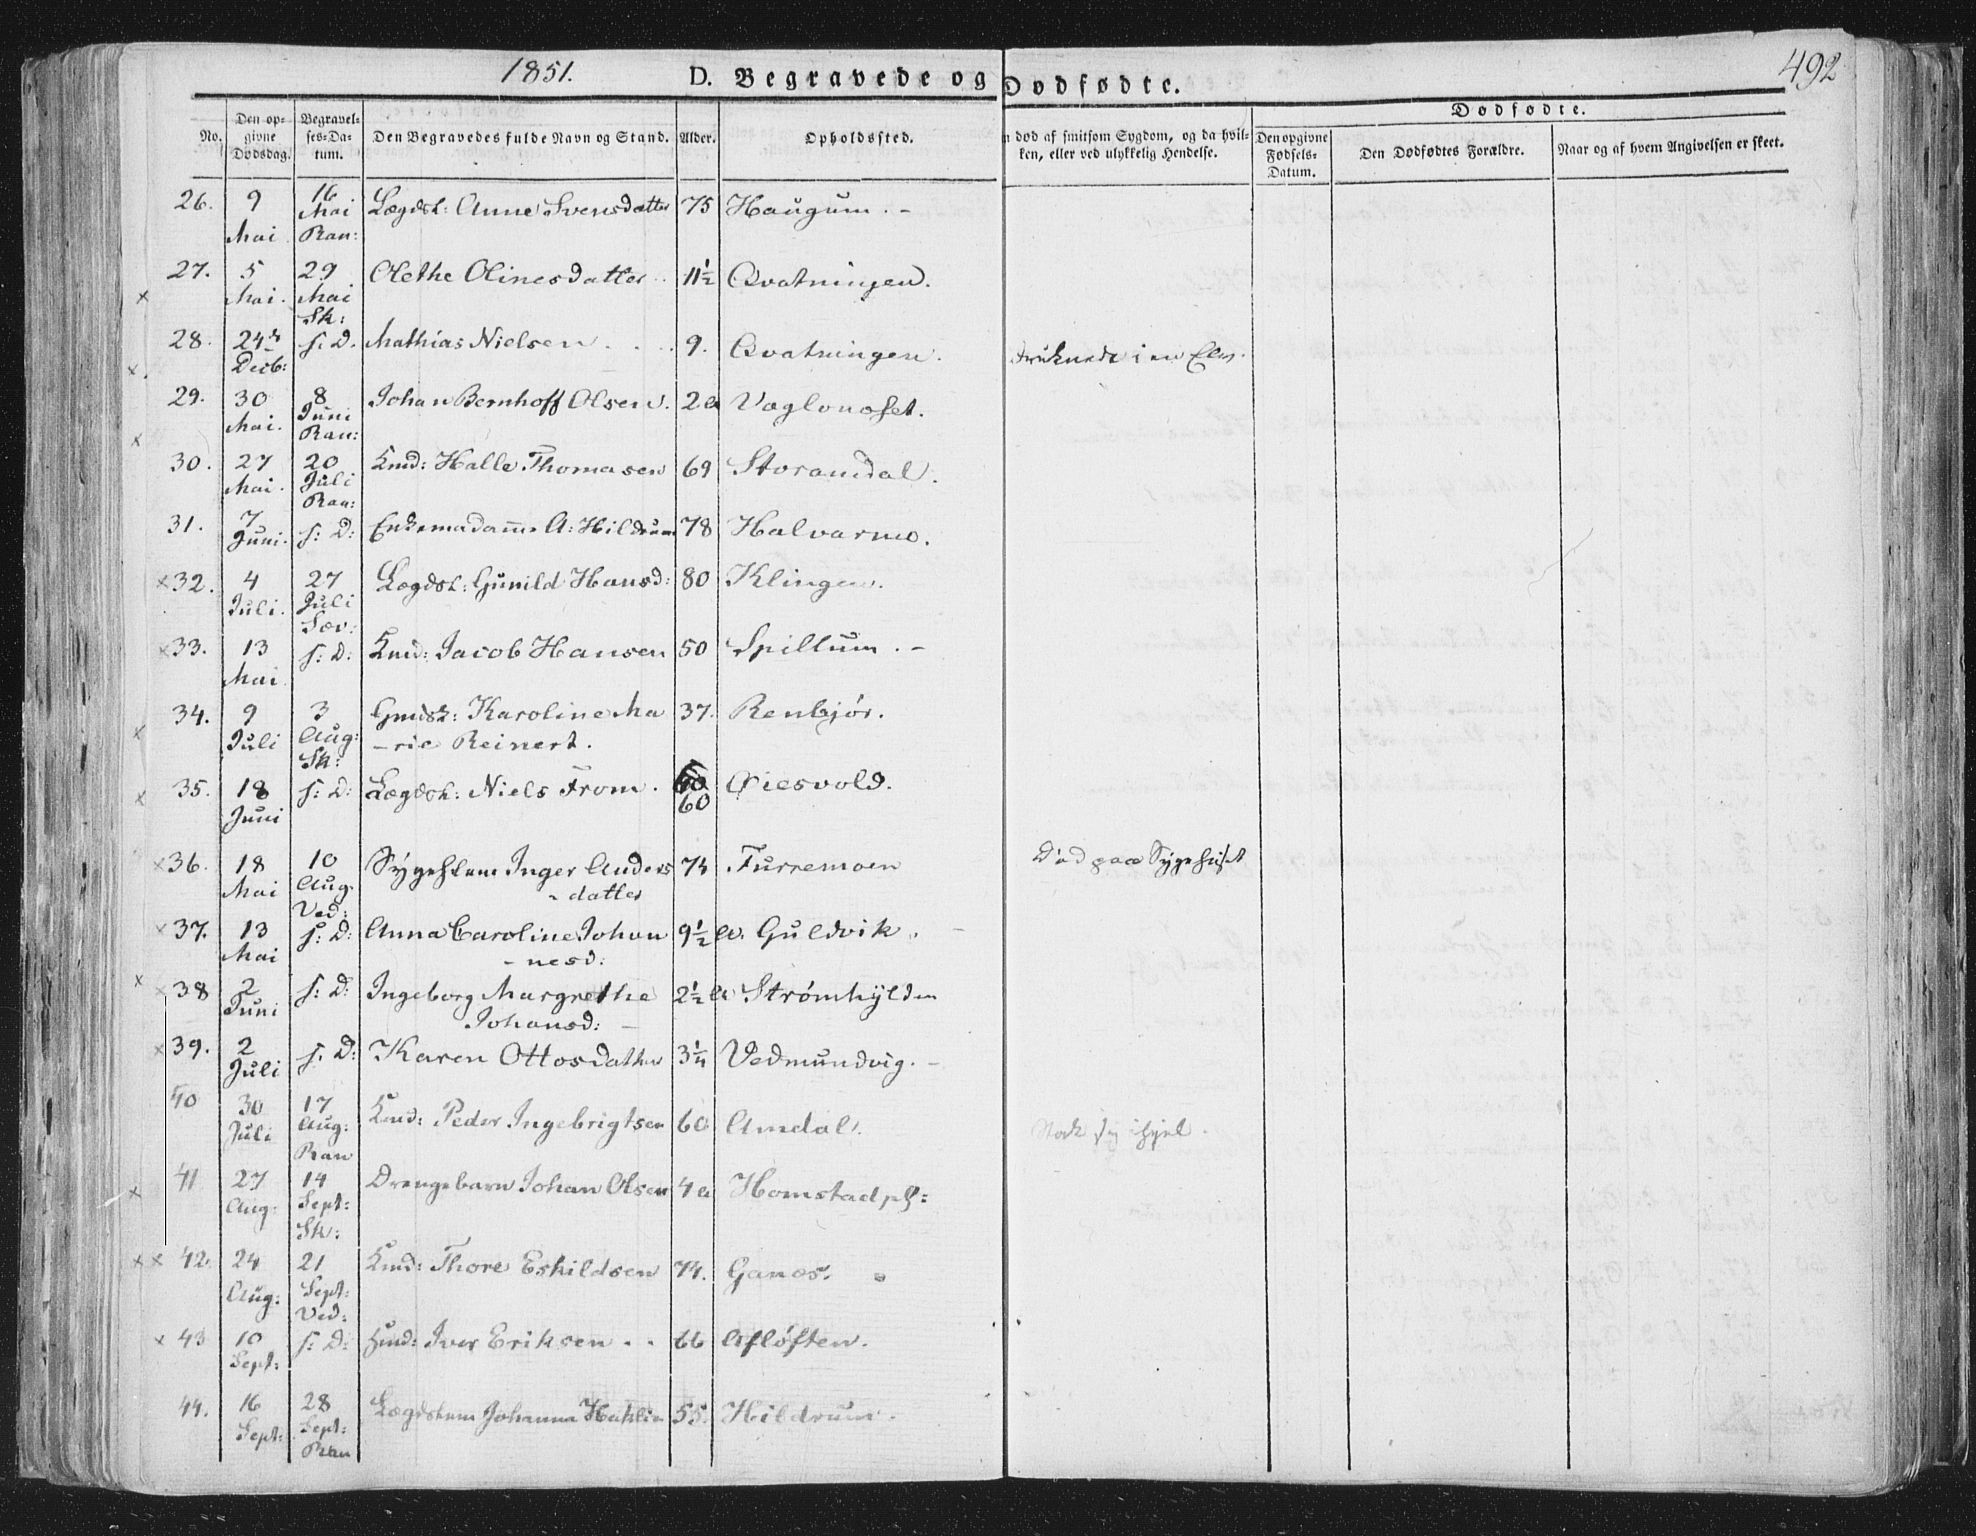 1851.
D. Begravede og Dødfødte.
492
No.
Den opgivne Dødsdag.
Begravelses-Datum.
Den Begravedes fulde Navn og Stand.
Alder.
Opholdssted.
n død af smitsom Sygdom, og da hvilken, eller ved ulykkelig Hendelse.
Dødfødte.
Den opgivne Fødsels-Datum.
Den Dødfødtes Forældre.
Naar og af hvem Angivelsen er skeet.
26. 9 Mai 16 Mai Ran: Lægdsl: Anne Svensdatter 75 Haugum. -
27. 5 Mai. 29 Mai Sk: Olethe Olinesdatter .. 11½ Qvatningen.
28. 24de Decb: s: D. Mathias Nielsen . . . 9. Qvatningen. druknede i en Elv.
29. 30 Mai. 8 Juni Ran: Johan Bernhoff Olsen. 2 a Vagloneset.
30. 27 Mai. 20 Juli Ran: Kmd: Halle Thomasen 69 Storamdal.
31. 7 Juni. s: D: Enkemadame A: Hildrum 78 Halvarmo.
32. 4 Juli. 27 Juli Sæv: Lægdsl: Gunild Hansd: 80 Klingen.
33. 13 Mai s: D: Kmd: Jacob Hansen 50 Spillum. -
34. 9 Juli 3 Aug: Sk: Gmdsk: Karoline Ma 37. Renbjør.
-rie Reinert.
35. 18 Juni s: D: Lægdsl: Niels From. 60 Øiesvold.
36. 18 Mai 10 Aug. Ved: Sygeslem Inger Anders 74 Furremoen Død paa Sygehuset
- datter
37. 13 Mai s: D: Anna Caroline Johan 9½ a. Guldvik.
- nesd:
38 2 Juni s: D: Ingeborg Margrethe 2½ a Strømhylden
Johansd: -
39. 2 Juli s. D: Karen Ottosdatter 3¼ Vedmundvig. -
40 30 Juli 17 Aug: Ran Kmd: Peder Ingebrigtsen 60 Amdal. Stak sig ihjel.
41 27 Aug: 14 Sept: Sk: Drengebarn Johan Olsen 4 a Homstadpl:
42. 24 Aug: 21 Sept: Ved: Kmd: Thore Eskildsen 74. Ganæs.
43 10 Sept: s: D: Huusmd: Iver Eriksen . . 66 Afløften.
44. 16 Sept: 28 Sept: Ran Lægdslem Johanna Hahlin 55. Hildrum.